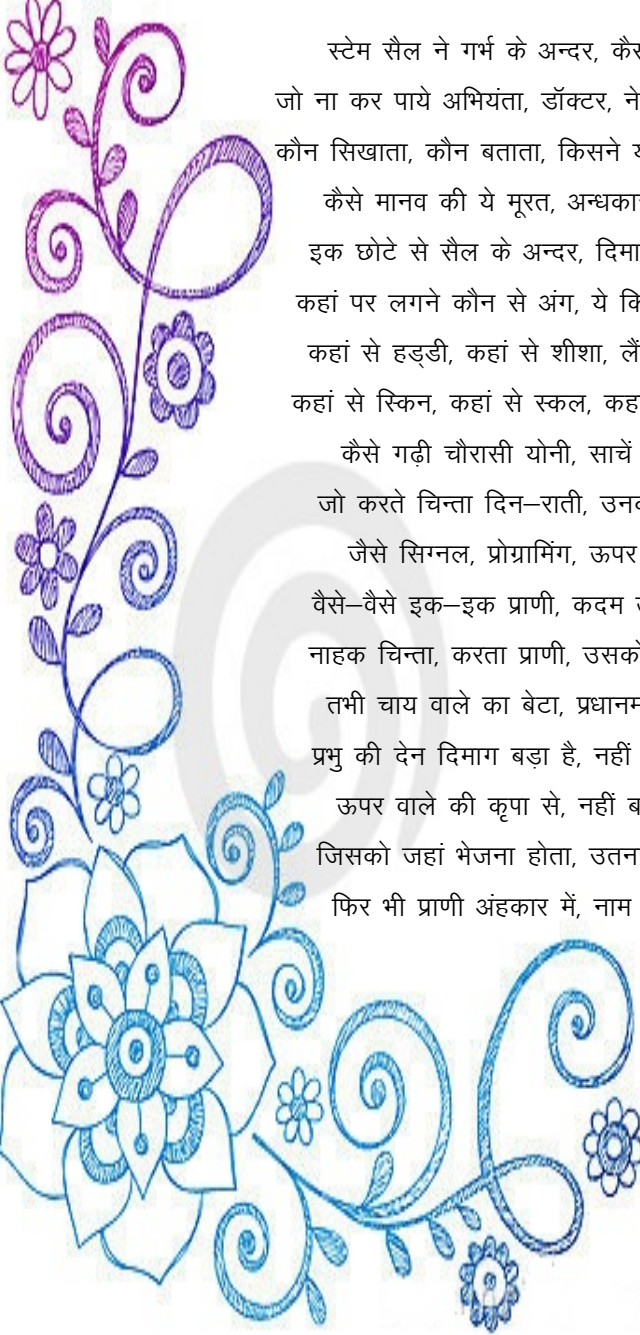 स्टेम सैल ने गर्भ के अन्दर,
जो ना कर पाये अभियंता, डॉक्टर,
कौन सिखाता, कौन बताता, किसने
कैसे मानव की ये मूरत,
इक छोटे से सैल के अन्दर,
कहां पर लगने कौन से अंग, ये
कहां से हड्डी, कहां से शीशा,
कहां से स्किन, कहां से स्कल,
कैसे गढ़ी चौरासी योनी, साचें
जो करते चिन्ता दिन–राती,
जैसे सिग्नल, प्रोग्रामिंग, ऊपर
वैसे–वैसे इक–इक प्राणी, कदम
नाहक चिन्ता, करता प्राणी,
तभी चाय वाले का बेटा,
प्रभु की देन दिमाग बड़ा है, नहीं
ऊपर वाले की कृपा से, नहीं
जिसको जहां भेजना होता,
फिर भी प्राणी अंहकार में, नाम